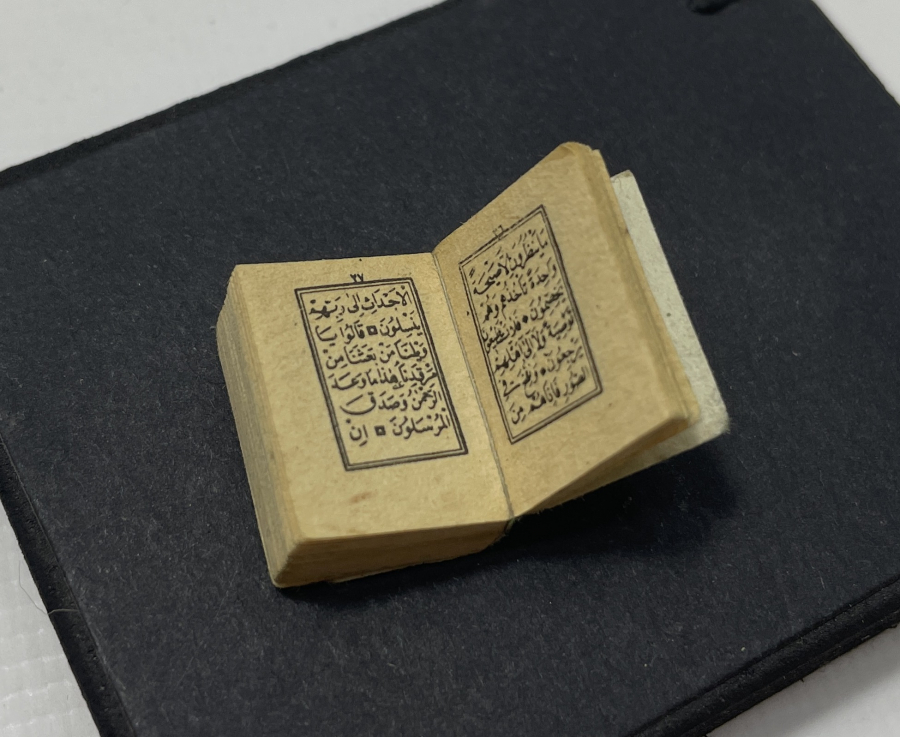 ٢٦
مَا يَنْظُرُونَ اِلَّا صَيْحَةً
وَاحِدَةً تَأْخُذُهُمْ وَهُمْ
يَخِصِّمُونَ • فَلَا يَسْتَطِيعُونَ
تَوْصِيَةً وَلَا اِلٰى اَهْلِهِمْ
يَرْجِعُونَ • وَنُفِخَ فِي
الصُّورِ فَاِذَا هُمْ مِنَ
٢٧
الْاَجْدَاثِ اِلٰى رَبِّهِمْ
يَنْسِلُونَ ◘ قَالُوا يَا
وَيْلَنَا مَنْ بَعَثَنَا مِنْ
مَرْقَدِنَا هٰذَا مَا وَعَدَ
الرَّحْمٰنُ وَصَدَقَ
الْمُرْسَلُونَ ◘ اِنْ